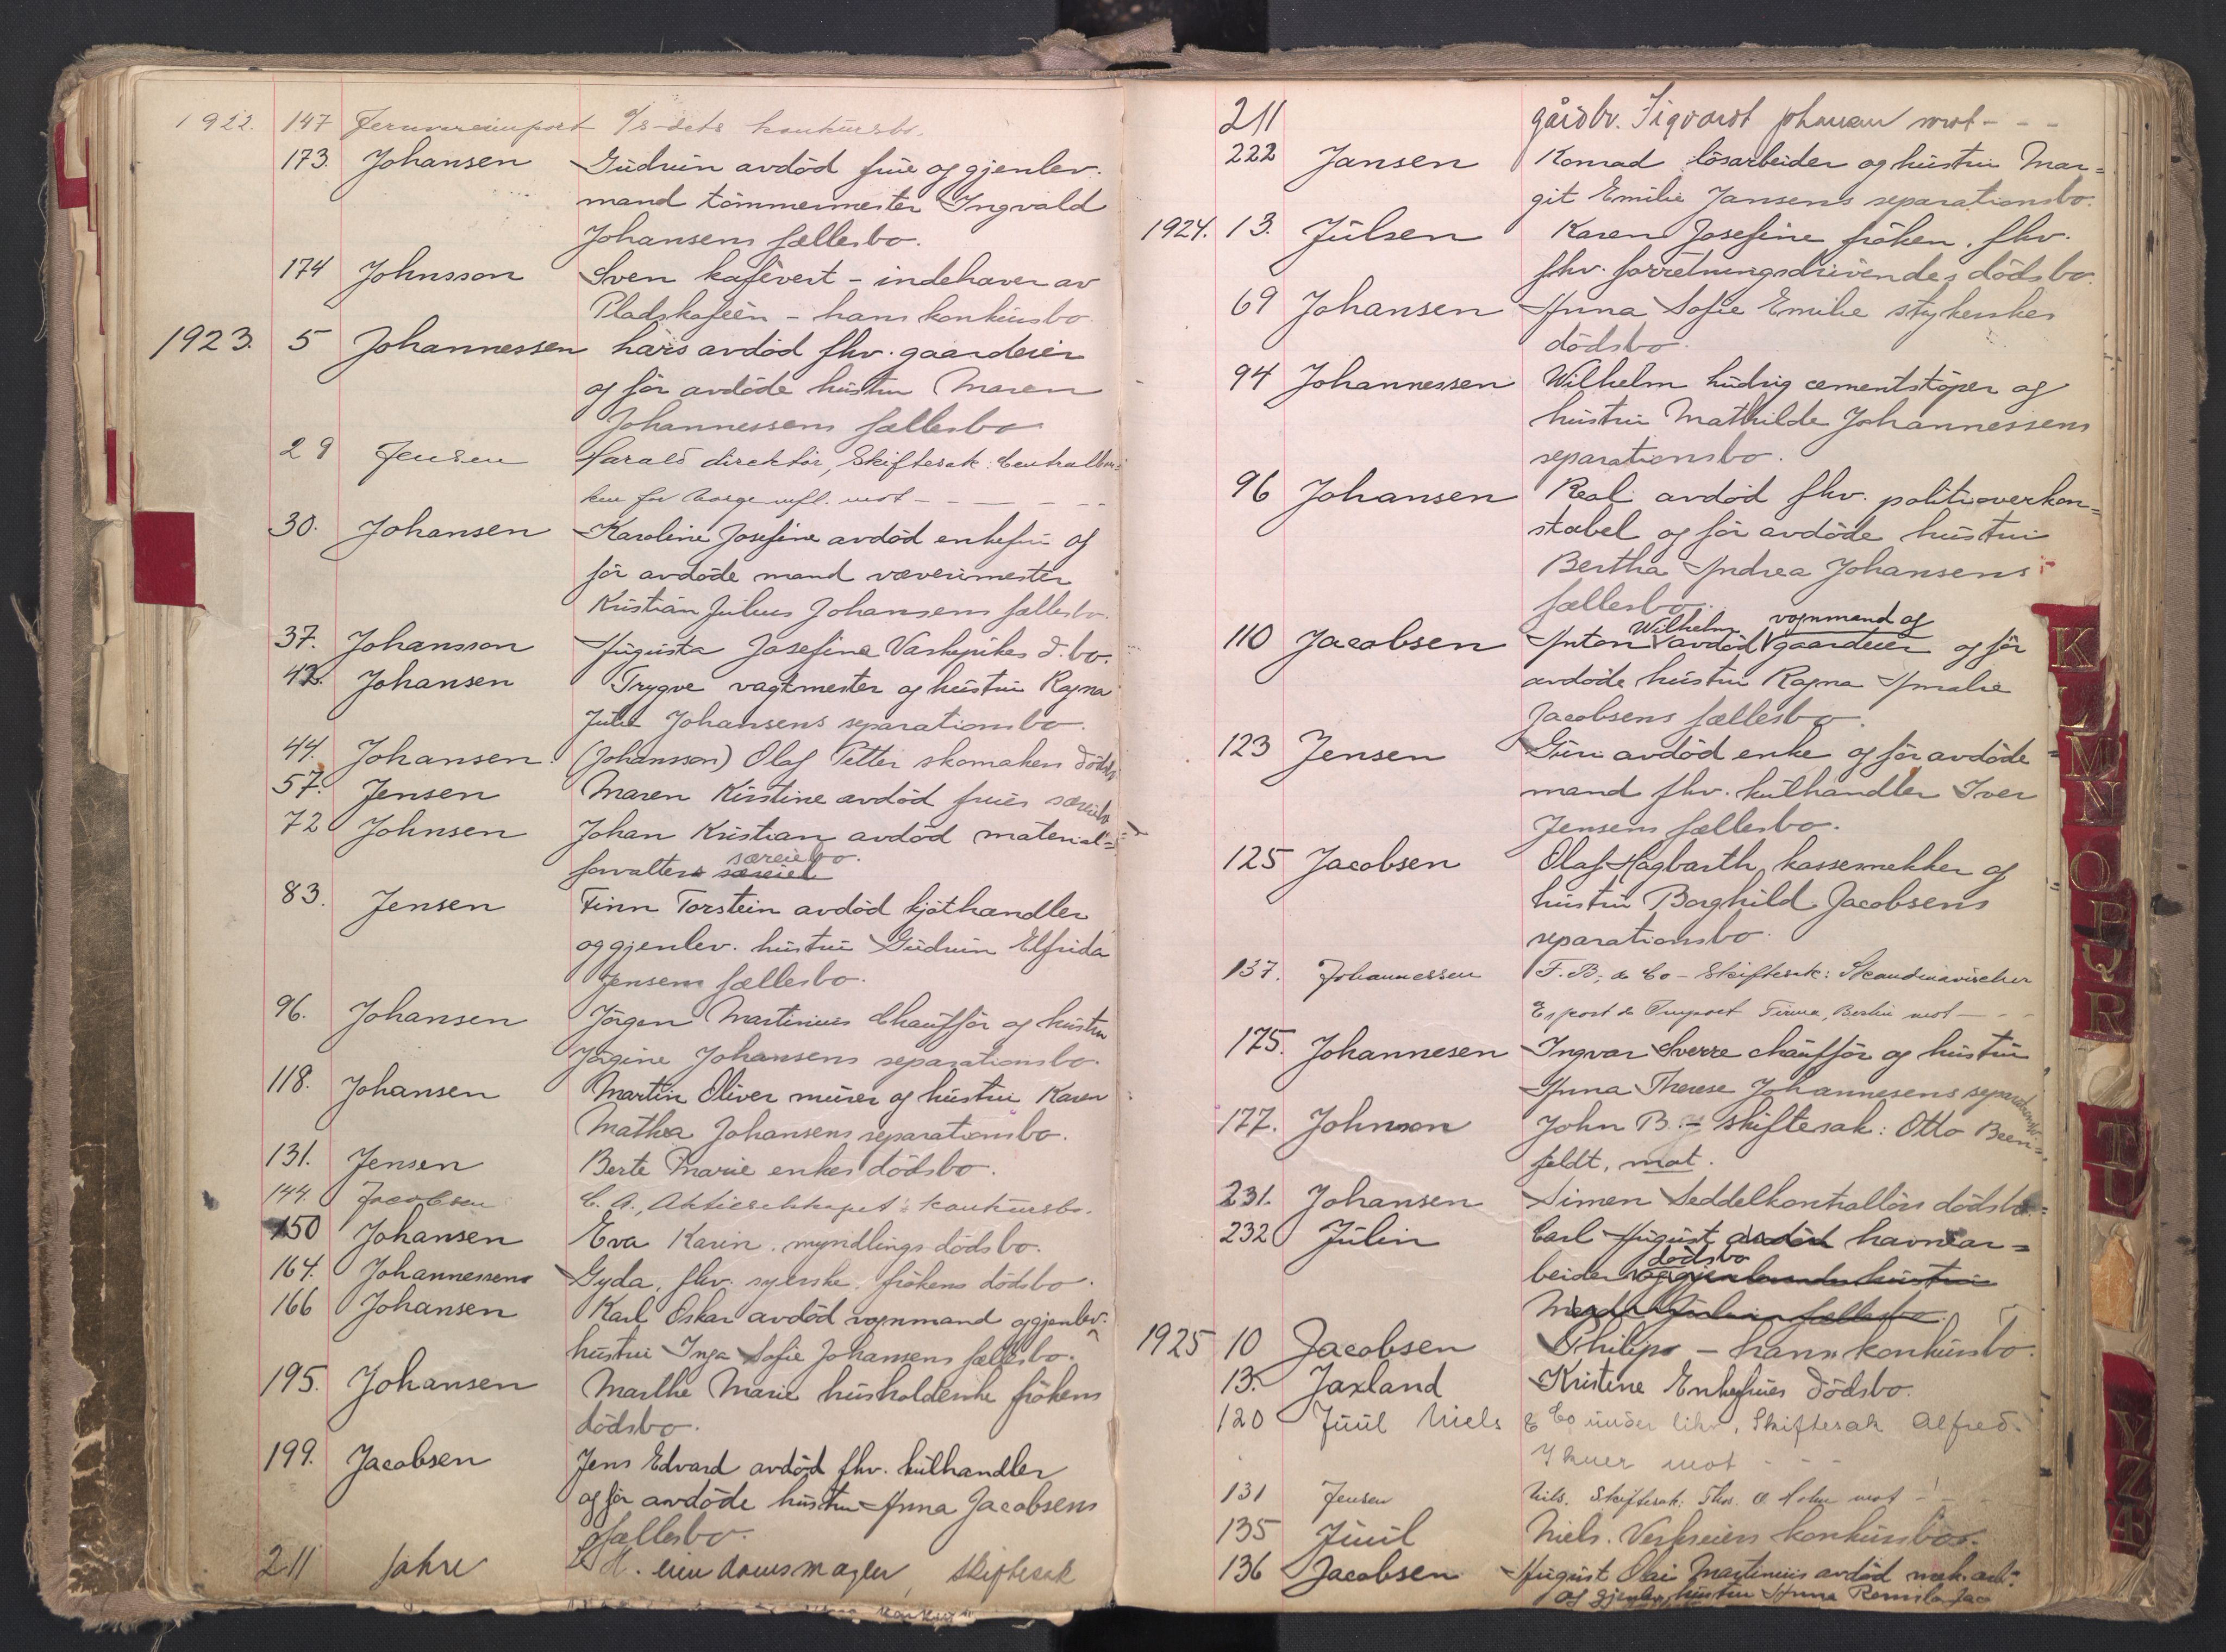 1922. 147 Jernvareimport A/S-dets konkursbo.
173. Johansen Gudrun avdöd frue og gjenlev.
mand tömmermester Ingvald
Johansens fællesbo.
174 Johnsson Sven kafévert - indehaver av
Pladskaféen - hans konkursbo
1923. 5 Johannessen Lars avdöd fhv. gaardeier
og för avdöde hustru Maren
Johannessens fællesbo
29 Jensen Harald direktör, Skiftesak: Centralban-
ken for Norge mfl. mot - - -
30. Johansen Karoline Josefine avdöd enkefru og
för avdöde mand væverimester
Kristian Julius Johansens fællesbo.
37. Johansson Augusta Josefine Vaskepikes d.bo.
42. Johansen Trygve vagtmester og hustru Ragna
Julie Johansens separationsbo.
44. Johansen (Johansson) Olaf Petter skomakers dödsbo
57. Jensen Maren Kirstine avdöd frues særeiebo
72 Johnsen Johan Kristian avdöd material=
særeiebo.
forvalters særeieb
83. Jensen Finn Torstein avdöd kjöthandler
og gjenlev. hustru Gudrun Elfrida
Jensens fællesbo.
96. Johansen Jörgen Martinius Chaufför og hustru
Jörgine Johansens separationsbo.
118. Johansen Martin Oliver murer og hustru Karen
Mathea Johansens separationsbo.
131. Jensen Berte Marie enkes dödsbo.
144. Jacobsen C. A., Aktieselskapet: konkursbo.
150 Johansen Eva Karin, myndlings dödsbo.
164. Johannessens Gyda, fhv. syerske, frökens dödsbo.
166 Johansen Karl Oskar avdöd vognmand og gjenlev.
hustru Inga Sofie Johansens fællesbo.
195. Johansen Marthe Marie husholderske frökens
dödsbo.
199. Jacobsen Jens Edvard avdöd fhv. kulhandler
og för avdöde hustru Anna Jacobsens
fællesbo.
211 Jahre H. eiendomsmægler, skiftesak
211 gårdbr. Sigvardt Johansen mot - - -
222 Jansen Konrad lösarbeider og hustru Mar=
git Emilie Jansens separationsbo.
1924. 13. Julsen Karen Josefine fröken, fhv.
fhv. forretningsdrivendes dödsbo.
69 Johansen Anna Sofie Emilie strykerskes
dödsbo.
94 Johannessen Wilhelm Ludvig cementstöper og
hustru Mathilde Johannessens
separationsbo.
96 Johansen Real avdöd fhv. politioverkon=
stabel og för avdöde hustru
Bertha Andrea Johansens
fællesbo.
Wilhelm vognmand og
110 Jacobsen Anton avdöd gaardeier og för
avdöde hustru Ragna Amalie
Jacobsens fællesbo.
123 Jensen Guri avdöd enke og för avdöde
mand fhv. kulhandler Iver
Jensens fællesbo.
125 Jacobsen Olaf Hagbarth, kassesnekker og
hustru Borghild Jacobsens
separationsbo.
137. Johannessen F. B. & Co - Skiftesak: Skandinavischer
Export & Import Firma, Berlin mot - - -
175. Johannesen Ingvar Sverre chaufför og hustru
Anna Therese Johannesens separationsbo.
177. Johnson John B. - skiftesak: Otto Been=
feldt, mot.
231. Johansen Simen Seddelkontrollörs dödsbo.
232 Julin Carl August avdöd havnear=
dödsbo
beiders og gjenlevende hustru
Julins fællesbo.
1925 10 Jacobsen Philips - hans konkursbo.
13. Jaxland Kristine Enkefrues dödsbo.
120 Juul Niels & Co under likv, Skiftesak Alfred
mot - - -
131 Jensen Nils. Skiftesak: Thos. O. Holm mot -
135 Juul Niels. Verkseiers konkursbo.
136 Jacobsen August Olai Martinius avdöd mek. arb.
og gjenlev. hustru Anna Jac
K
L
M
N
O
P
Q
R
T
U
Y
Z
Æ